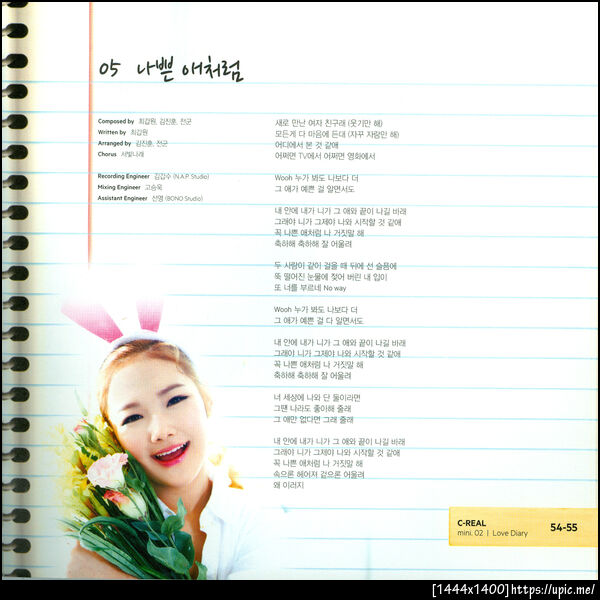 05 나쁜 애처럼
Composed by 최갑원, 김진훈, 전군
Written by 최갑원
Arranged by 김진훈, 전군
Chorus 서빛나래
Recording Engineer 김갑수 (N.A.P. Studio)
Mixing Engineer 고승욱
Assistant Engineer 선영 (BONO Studio)
새로 만난 여자 친구래 (웃기만 해)
모든게 다 마음에 든대 (자꾸 자랑만 해)
어디에서 본 것 같애
어쩌면 TV에서 어쩌면 영화에서
Wooh 누가 봐도 나보다 더
그 애가 예쁜 걸 알면서도
내 안에 내가 니가 그 애와 끝이 나길 바래
그래야 니가 그제야 나와 시작할 것 같애
꼭 나쁜 애처럼 나 거짓말 해
축하해 축하해 잘 어울려
두 사람이 같이 걸을 때 뒤에 선 슬픔에
뚝 떨어진 눈물에 젖어 버린 내 입이
또 너를 부르네 No way
Wooh 누가 봐도 나보다 더
그 애가 예쁜 걸 다 알면서도
내 안에 내가 니가 그 애와 끝이 나길 바래
그래야 니가 그제야 나와 시작할 것 같애
꼭 나쁜 애처럼 나 거짓말 해
축하해 축하해 잘 어울려
너 세상에 나와 단 둘이라면
그땐 나라도 좋아해 줄래
그 애만 없다면 그래 줄래
내 안에 내가 니가 그 애와 끝이 나길 바래
그래야 니가 그제야 나와 시작할 것 같애
꼭 나쁜 애처럼 나 거짓말 해
속으론 헤어져 겉으론 어울려
왜 이러지
C-REAL
mini. 02 | Love Diary
54-55
[1444x1400]https://upic.me/